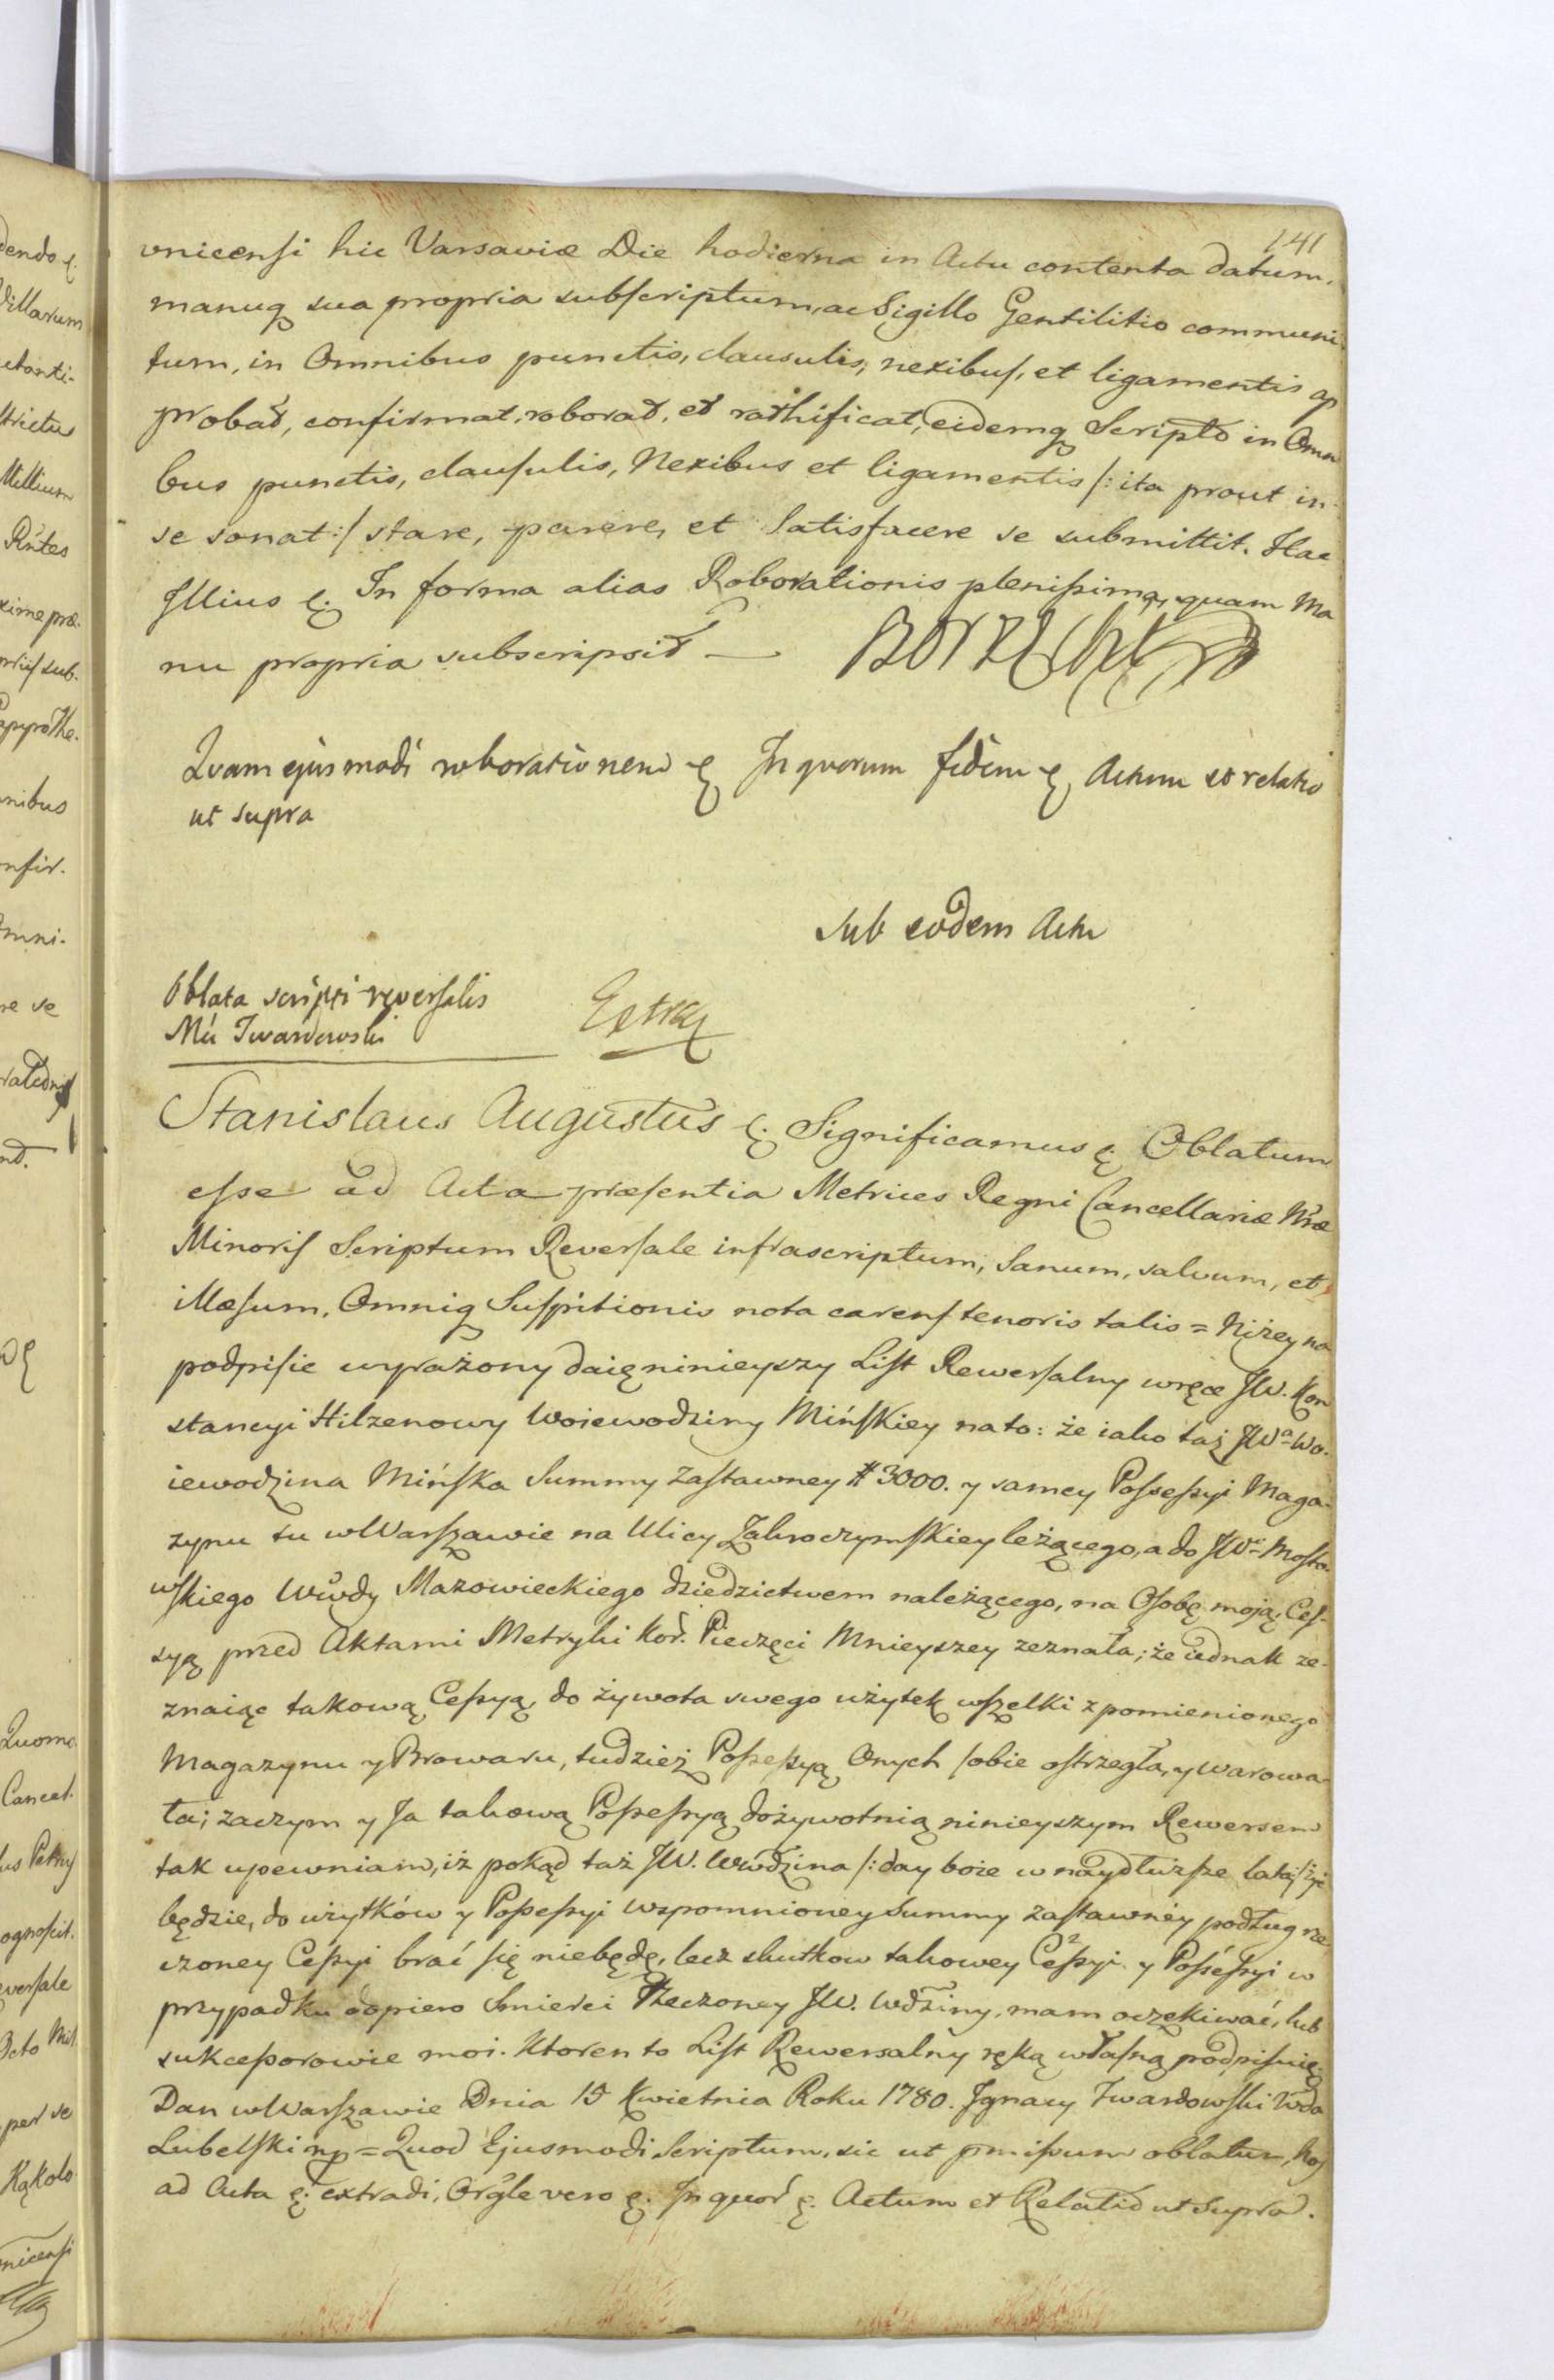 141
vnicensi hic Varsaviæ Die hodierna in Actu contenta datum,
manuq sua propria subscriptum, ac Sigillo Gentilitio communi
tum, in Omnibus punctis, clausulis, nexibus, et ligamentis ap
probat, confirmat, roborat, et rathificat, eidemq Scripto in Omni
bus punctis, clausulis, Nexibus et ligamentis /: ita prout in
se sonat :/ stare, parere, et Satisfacere se submittit. Hac
Illius &. In forma alias Roborationis plenissima, quam Ma
nu propria subscripsit —
Quam ejusmodi roborationem & In quorum fidem & Actum et relatio
ut supra
Sub eodem Actu
Oblata scripti reversalis
Mci Twardowski
Extrad
Stanislaus Augustus &. Significamus &. Oblatum
esse ad Acta præsentia Metrices Regni Cancellariæ Nræ
Minoris Scriptum Reversale infrascriptum, Sanum, salvum, et
illæsum, Omniq Suspitionis nota carens tenoris talis = Niżey na
podpisie wyrażony daię ninieyszy List Rewersalny w ręce JW. Kon
stancyi Hilzenowy Woiewodziny Mińskiey na to: że iako taż JWa Wo-
iewodzina Mińska Summy Zastawney # 3000. y samey Possessyi Maga-
zynu tu w Warszawie na Ulicy Zakroczymskiey leżącego, a do JWo Mosto-
wskiego Wwdy Mazowieckiego dziedzictwem należącego, na Osobę moją, Ces-
syą przed Aktami Metryki Kor. Pieczęci Mnieyszey zeznała; że iednak ze-
znaiąc takową Cessyą, do żywota swego użytek wszelki z pomienionego
Magazynu y Browaru, tudzież Possessyą Onych sobie ostrzegła, y warowa-
ła; zaczym y Ja takową Possessyą dożywotnią ninieyszym Rewersem
tak upewniam, iż pokąd taż JW. Wwdzina /: day boże w naydłuższe lata :/ żyć
będzie, do użytków y Possessyi wzpomnioney Summy zastawney podług rze
czoney Cessyi brać się niebędę, lecz skutkow takowey Cessyi y Possessyi w
przypadku dopiero Smierci Rzeczoney JW. Wdziny, mam oczekiwać, lub
sukcessorowie moi. Ktoren to List Rewersalny ręką własną podpisuię.
Dan w Warszawie Dnia 15 Kwietnia Roku 1780. Ignacy Twardowski Wda
Lubelski mp = Quod Ejusmodi Scriptum, sic ut pmissum oblatum, Nos
ad Acta &. extradi, Orgle vero &. In quor &. Actum et Relatio ut Supra.